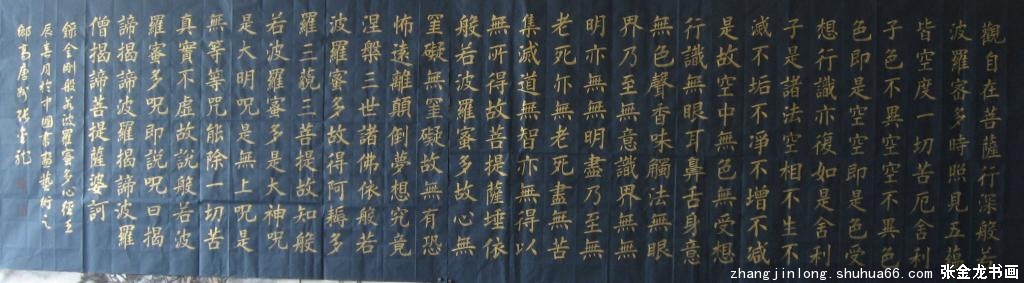 觀自在菩薩行深般若
波羅蜜多時照見五蘊
皆空度一切苦厄舍利
子色不異空空不異色
色即是空空即是色受
想行識亦復如是舍利
子是諸法空相不生不
滅不垢不淨不增不減
是故空中無色無受想
行識無眼耳鼻舌身意
無色聲香味觸法無眼
界乃至無意識界無無
明亦無無明盡乃至無
老死亦無老死盡無苦
集滅道無智亦無得以
無所得故菩提薩埵依
般若波羅蜜多故心無
罣礙無罣礙故無有恐
怖遠離顛倒夢想究竟
涅槃三世諸佛依般若
波羅蜜多故得阿耨多
羅三藐三菩提故知般
若波羅蜜多是大神呪
是大明呪是無上呪是
無等等咒能除一切苦
真實不虛故說般若波
羅蜜多呪即說呪曰揭
諦揭諦波羅揭諦波羅
僧揭諦菩提薩婆訶
錄金剛般若波羅蜜多心經壬
辰春月於中國書畫藝術之
鄉高唐張金龍
zhangjinlong.shuhua66.com 张金龙书画